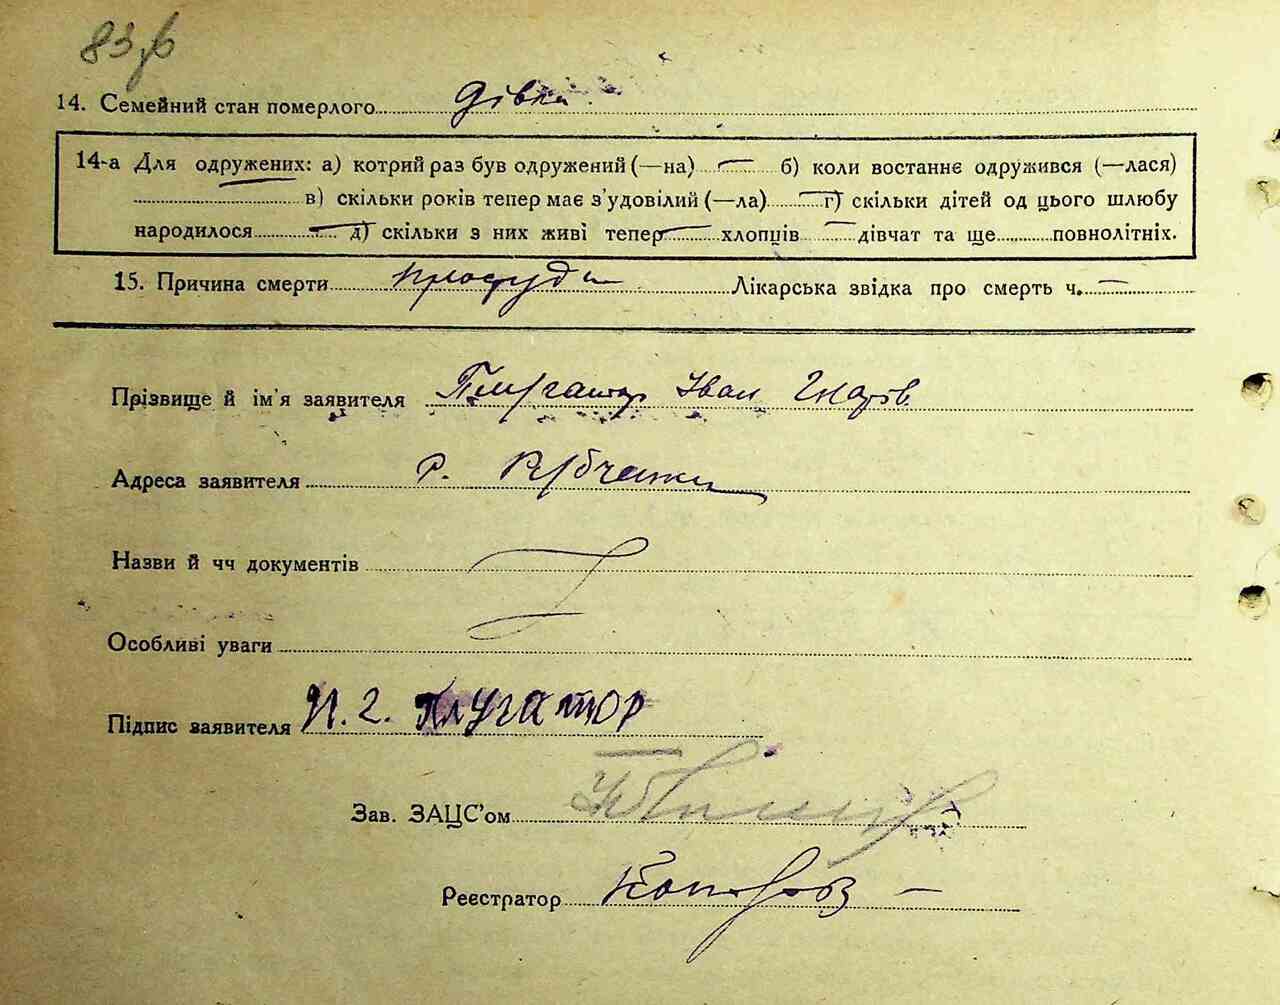 83
14. Семейний стан померлого дівка
14-а Для одружених: а) котрий раз був одружений (—на) — б) коли востаннє одружився (—лася)
в) скільки років тепер має з’удовілий (—ла) — г) скільки дітей од цього шлюбу
народилося — д) скільки з них живі тепер — хлопців — дівчат та ще повнолітніх.
15. Причина смерти простуда Лікарська звідка про смерть ч. —
Прізвище й ім’я заявителя Плугатор Іван Гнатів
Адреса заявителя с.
Назви й чч документів
Особливі уваги
Підпис заявителя И. Г. Плугатор
Зав. ЗАЦС’ом
Реєстратор